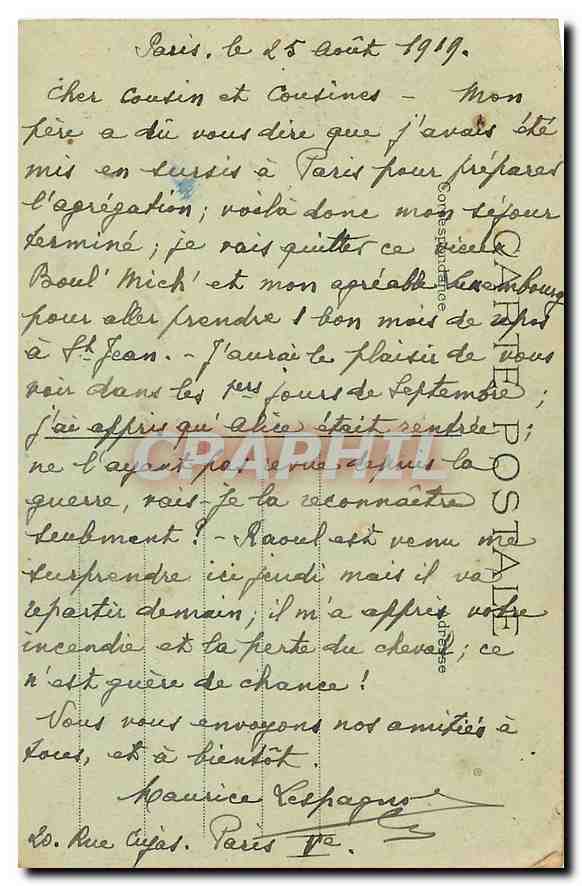 Paris, le 25 août 1919.
Cher Cousin et Cousines - Mon
père a dû vous dire que j'avais été
mis en sursis à Paris pour préparer
l'agrégation; voilà donc mon séjour
terminé; je vais quitter ce vieux
Boul' Mich' et mon agréable Luxembourg
pour aller prendre 1 bon mois de repos
à St Jean. - J'aurai le plaisir de vous
voir dans les 1ers jours de Septembre;
j'ai appris qu'Alice était rentrée;
ne l'ayant pas revue depuis la
guerre, vais-je la reconnaître
seulement? - Raoul est venu me
surprendre ici jeudi mais il va
repartir demain; il m'a appris votre
incendie et la perte du cheval; ce
n'est guère de chance!
Nous vous envoyons nos amitiés à
tous, et à bientôt.
Maurice Lespagnol
20. Rue Cujas. Paris Ve.
CARTE POSTALE
Correspondance
Adresse
CRAPHIL